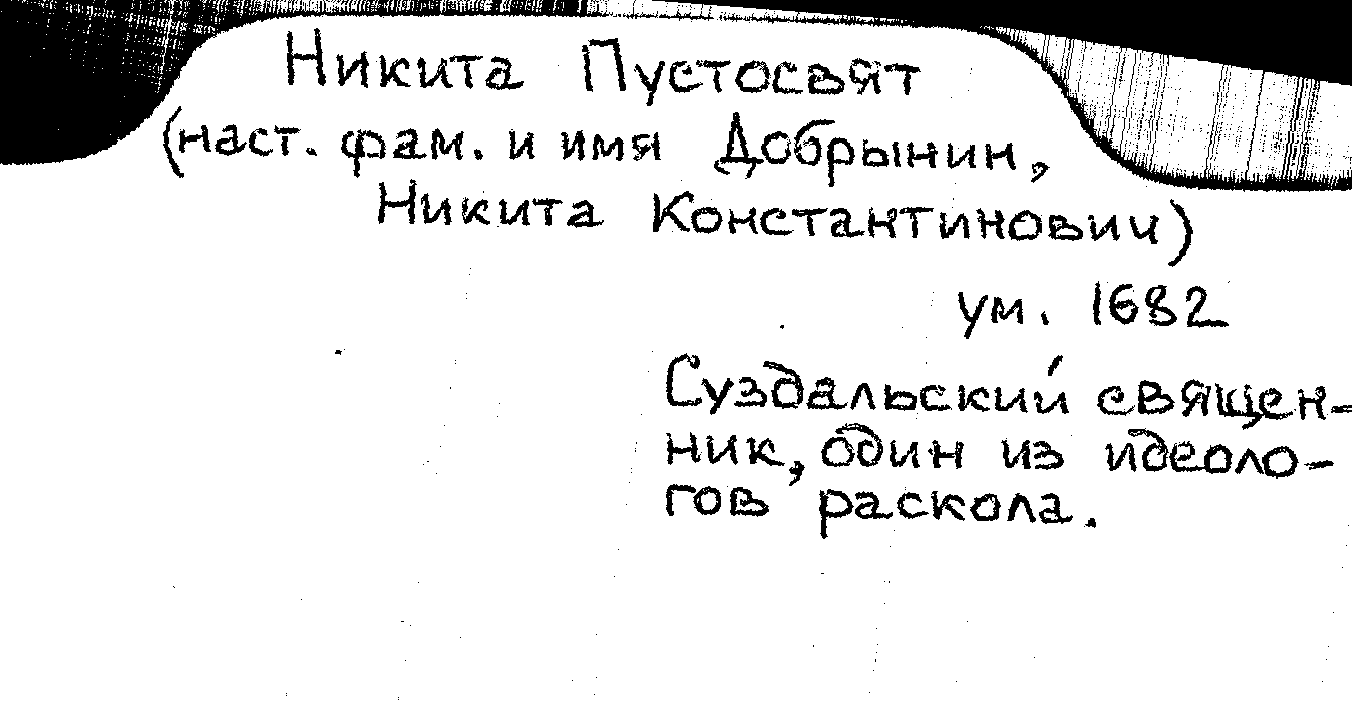 Никита Пустосвят
(наст. фам. и имя Добрынин,
Никита Константинович)
ум. 1682
Суздальский священ-
ник, один из идеоло-
гов раскола.